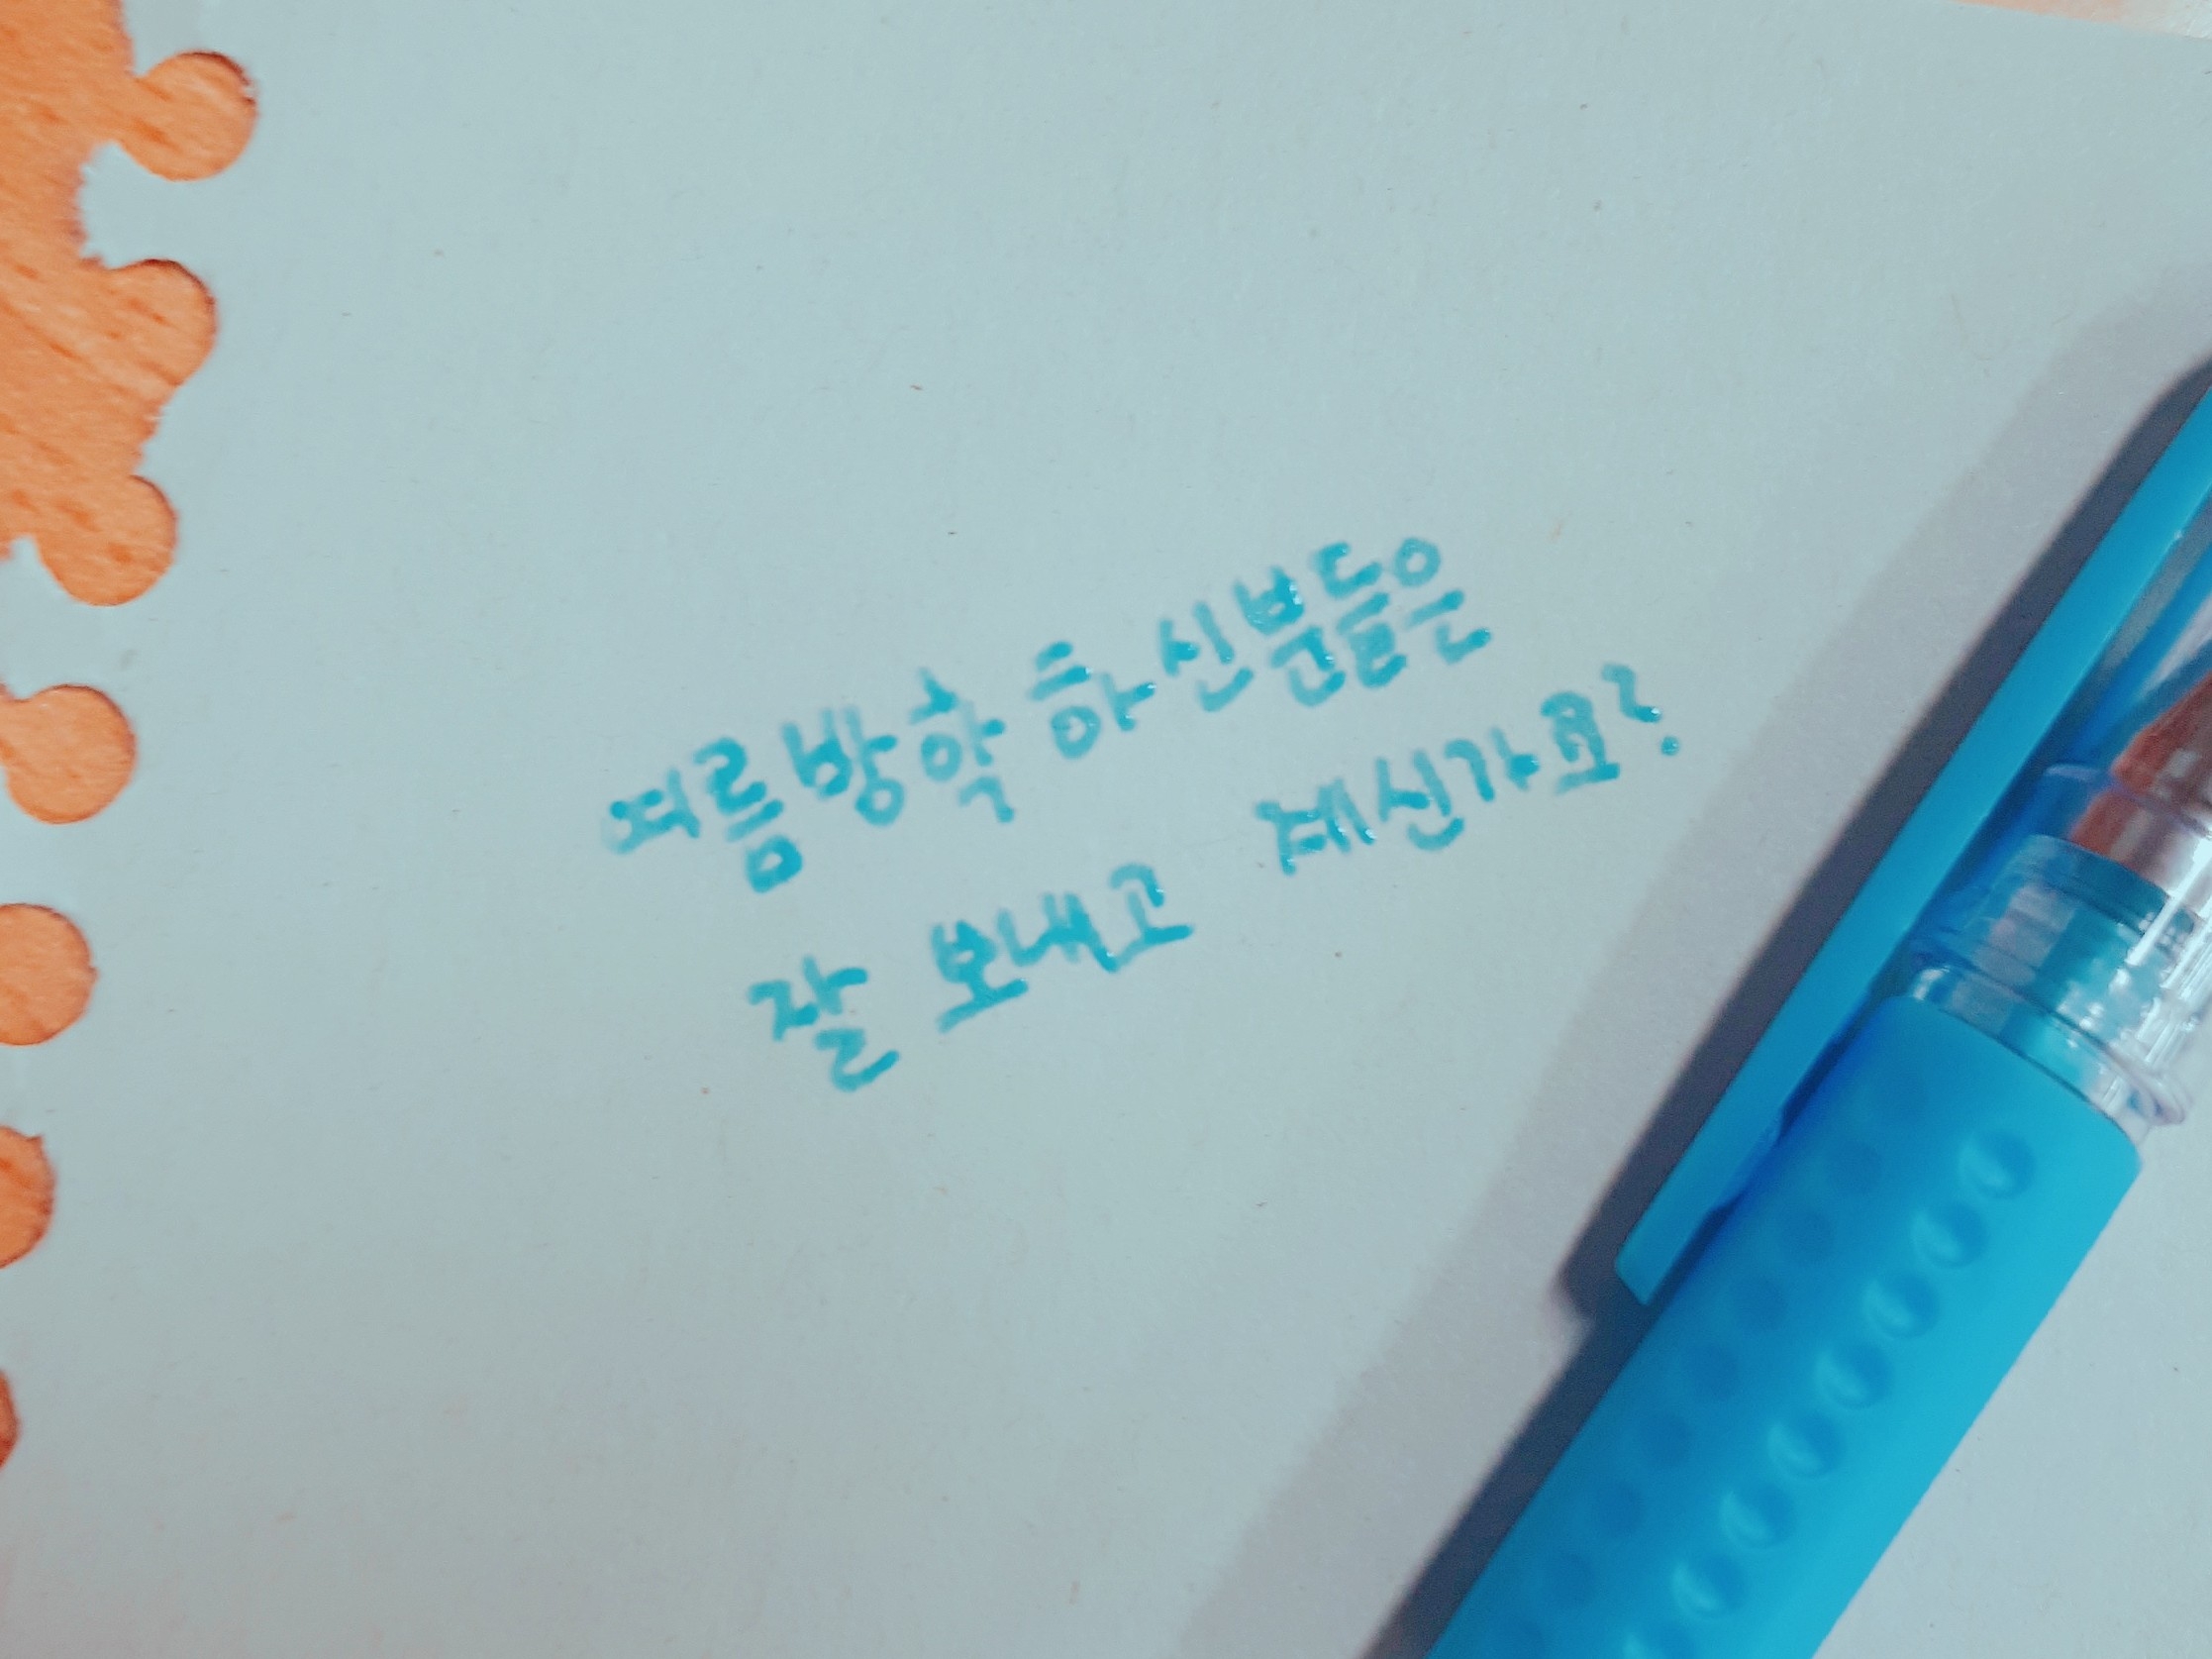 여름방학 하신분들은
잘 보내고 계신가요?